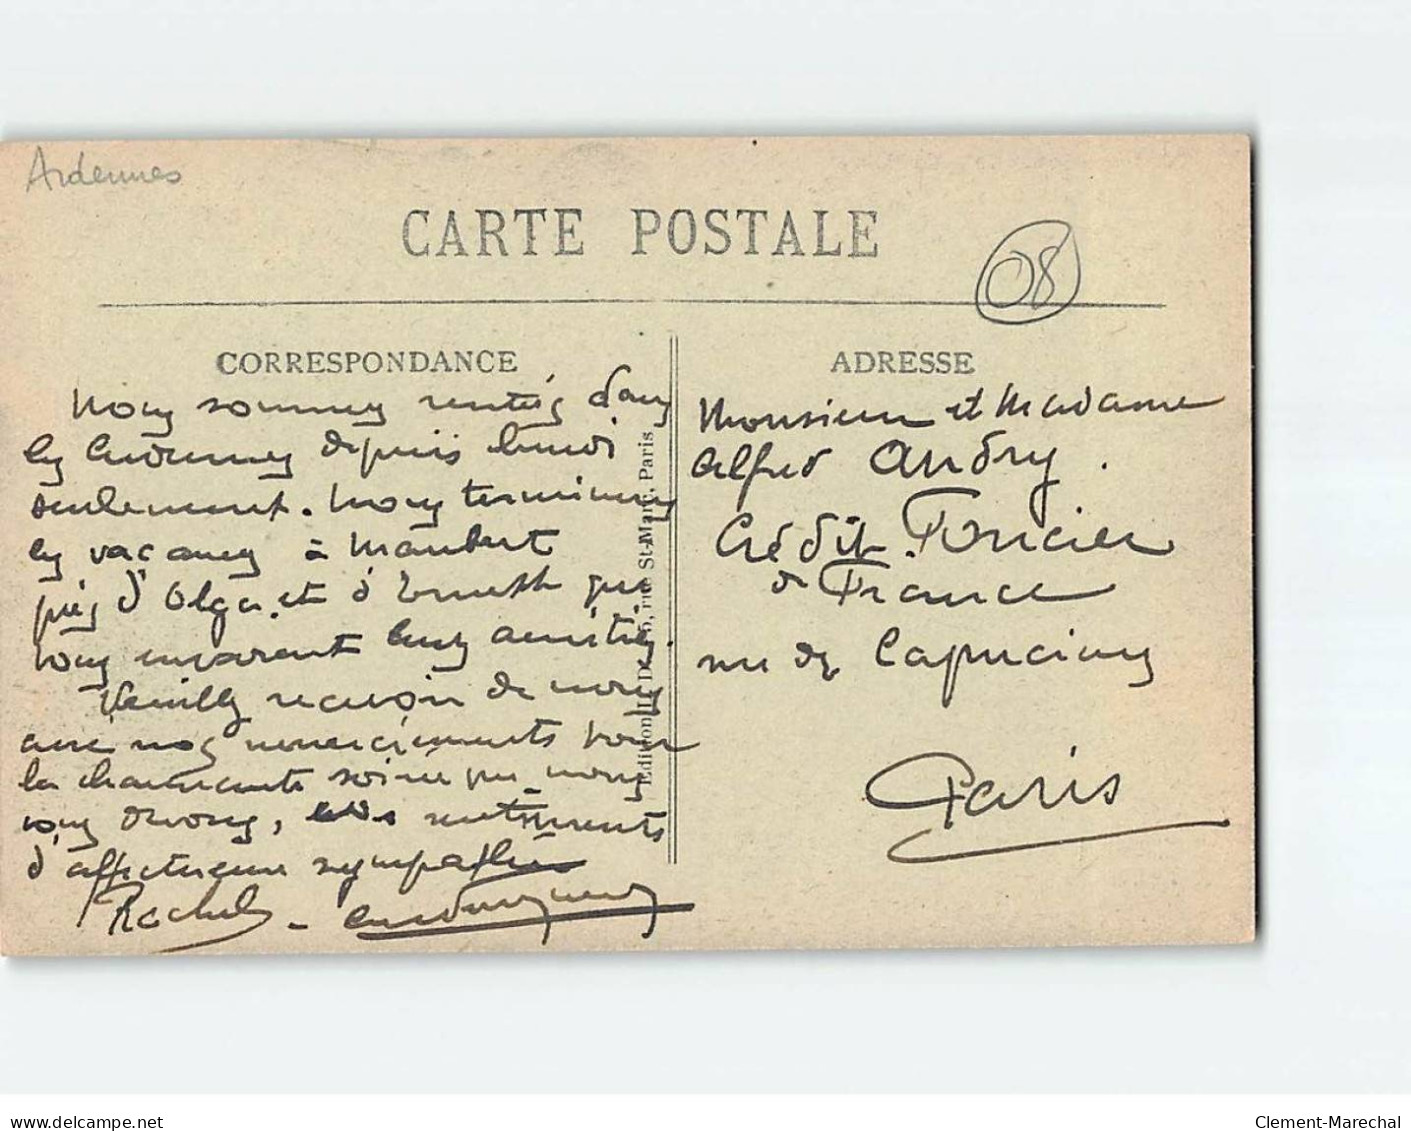 Ardennes
CARTE POSTALE
08
CORRESPONDANCE
ADRESSE
Nous sommes rentrés dans
les Ardennes depuis lundi
seulement. Nous terminons
les vacances à Maubert
près d'Olga et d'Ernest qui
vous envoient leurs amitiés.
Veuillez recevoir de nous
avec nos remerciements pour
la charmante soirée que nous
vous devons, nos sentiments
d'affectueuse sympathie
Rachel -
Monsieur et Madame
Alfred Andry.
Crédit Foncier
de France
rue des Capucines
Paris
Edition
St-Marc, Paris
delcampe.net
Clement-Marechal